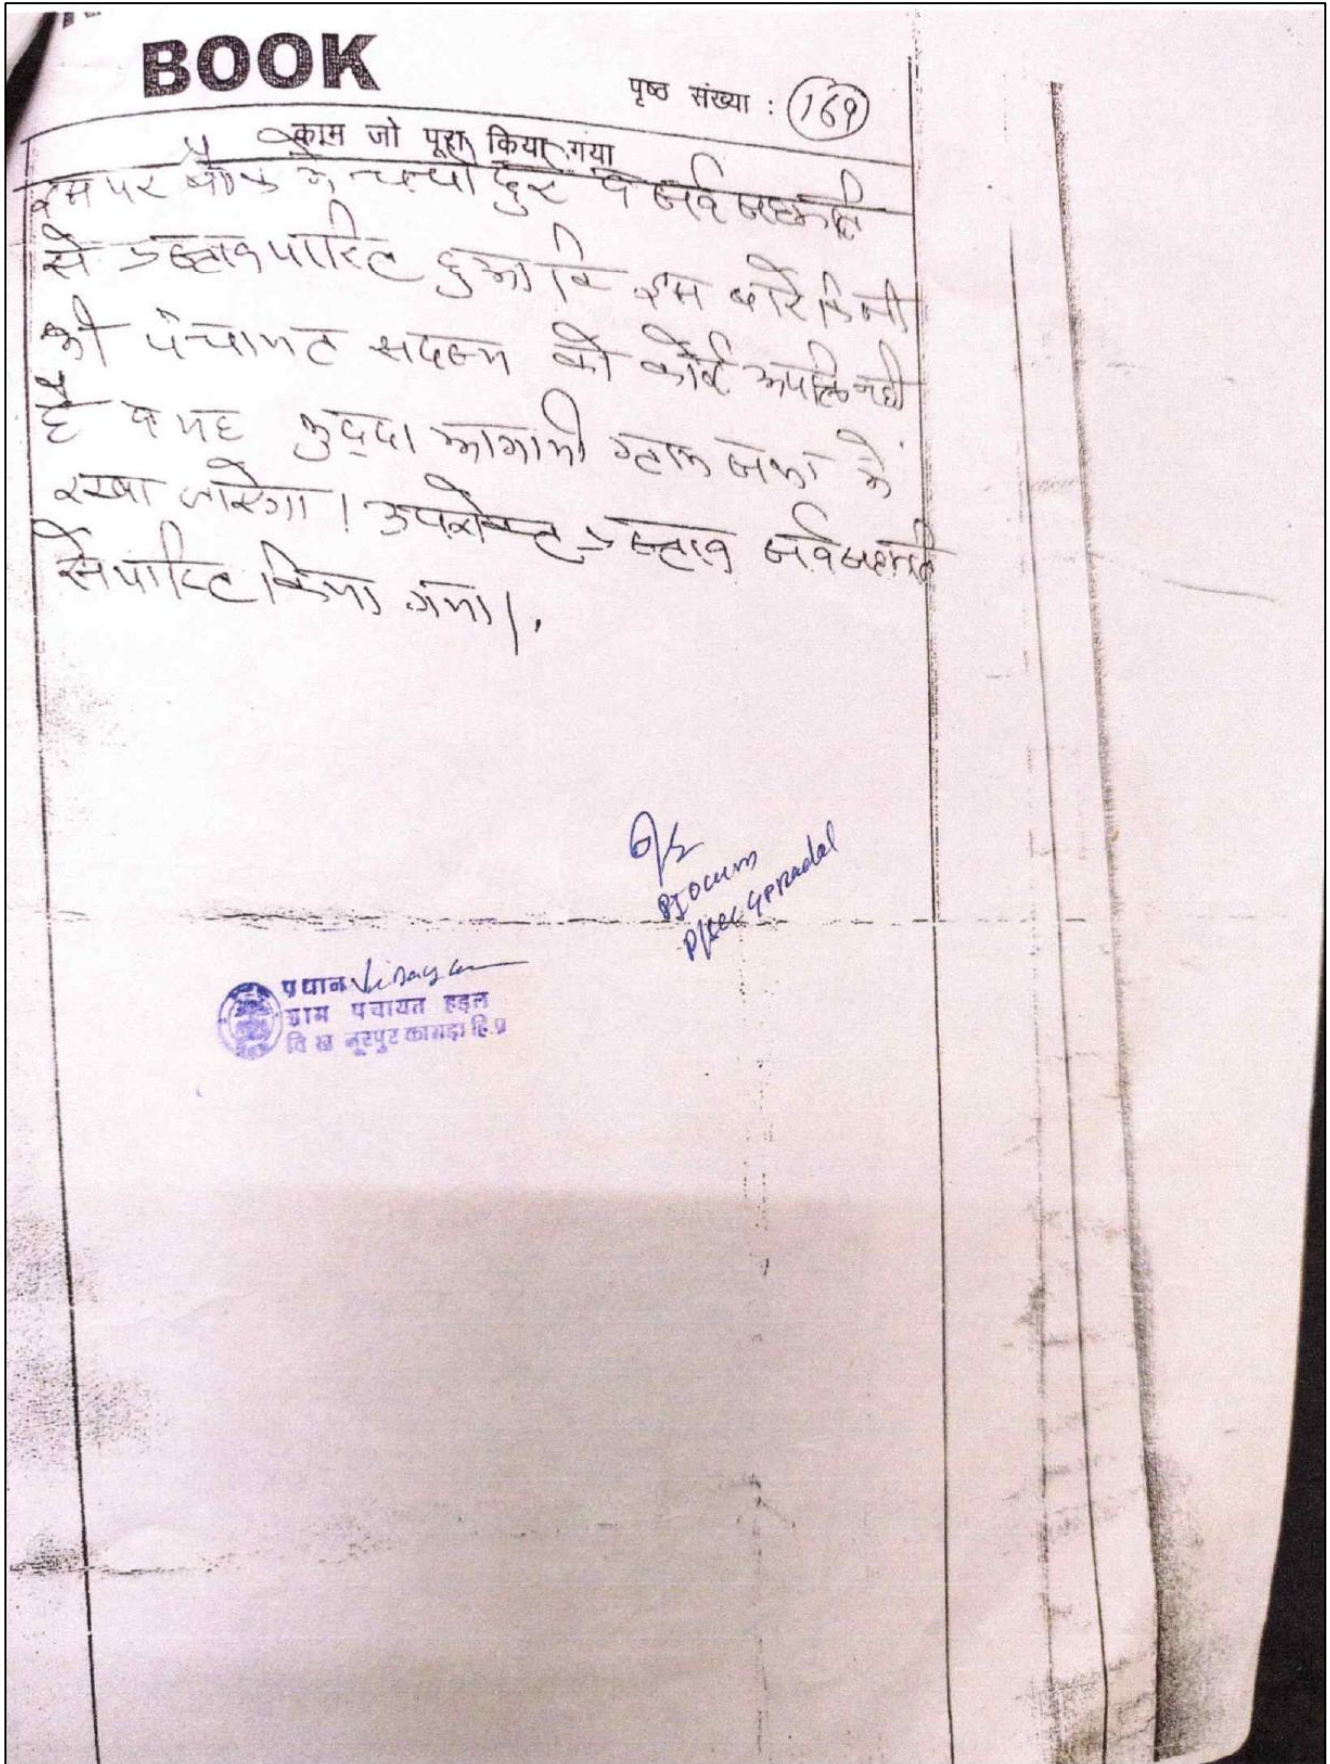 BOOK
पृष्ठ संख्या : 169
काम जो पूरा किया गया
इस पर बैठक में चर्चा हुई व सर्व सहमति
से प्रस्ताव पारित हुआ कि इस बारे किसी
भी पंचायत सदस्य को कोई आपत्ति नहीं
है व यह मुद्दा आगामी ग्राम सभा में
रखा जाऐगा। उपरोक्त प्रस्ताव सर्वसहमति
से पारित किया गया।
प्रधान
ग्राम पंचायत हड़ल
वि ख नूरपुर कांगड़ा हि.प्र